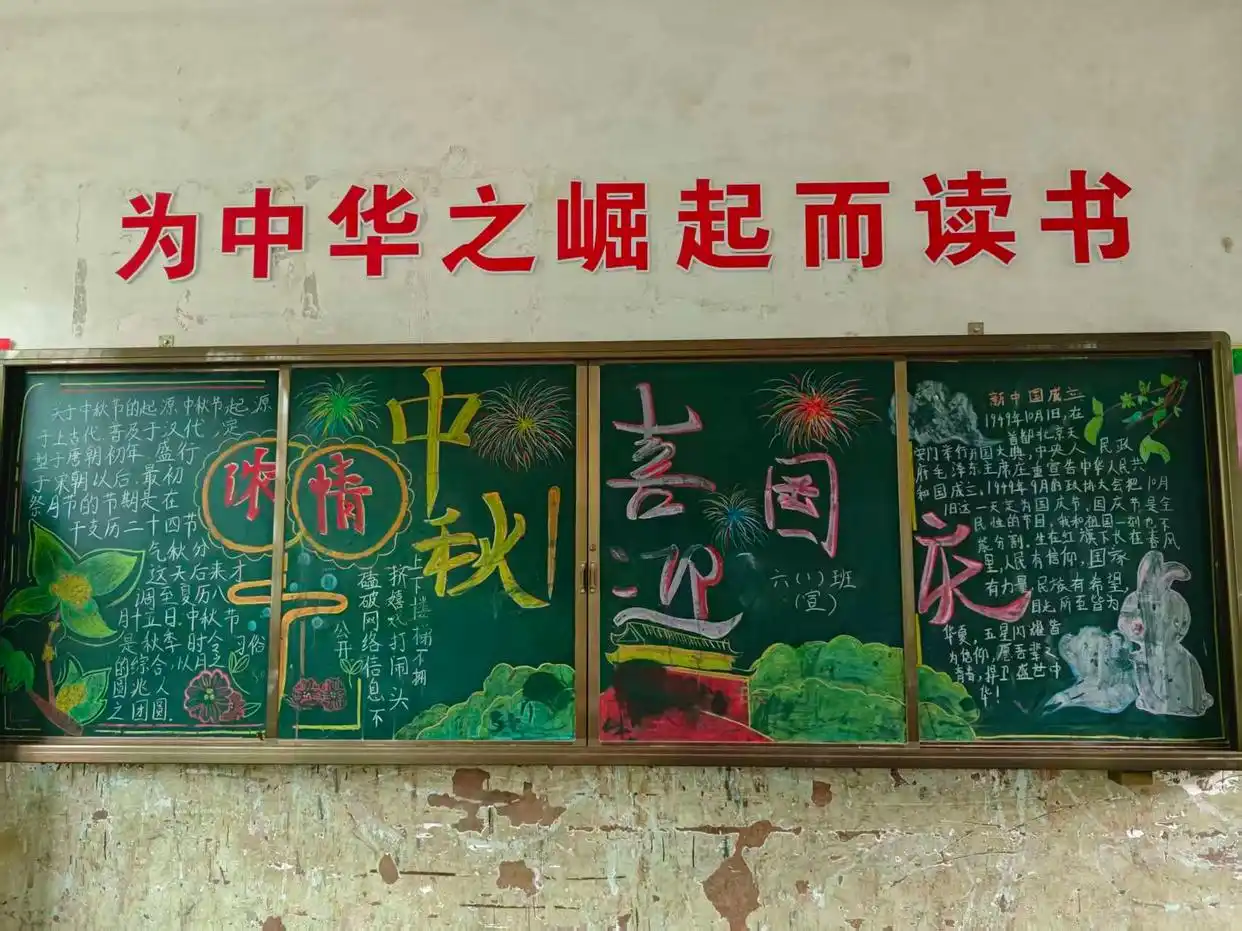 为中华之崛起而读书
关于中秋节的起源,中秋节起源
于上古代,普及于汉代,定
型于唐朝初年,盛行
于宋朝以后,最初
祭月节的节期是在
干支历二十四节
气秋分
这天后来才
调至夏历八
月十五日.中秋节
是秋季,时令习俗
的综合,以月之
圆兆人
之团圆.
浓情
中秋
上下楼梯不拥
挤嬉戏打闹头
磕破网络信息不
公开
喜迎
国
庆
六(1)班
(宣)
新中国成立
1949年10月1日,在
首都北京天
安门举行开国大典,中央人民政
府毛泽东主席庄重宣告中华人民共
和国成立,1949年9月的政协大会把10月
1日这一天定为国庆节,国庆节是全
民性的节日,我和祖国一刻也不
能分割,生在红旗下长在春风
里,人民有信仰,国家
有力量,民族有希望,
目光所至皆为
华夏,五星闪耀皆
为信仰,愿吾辈之
青春,捍卫盛世中
华!